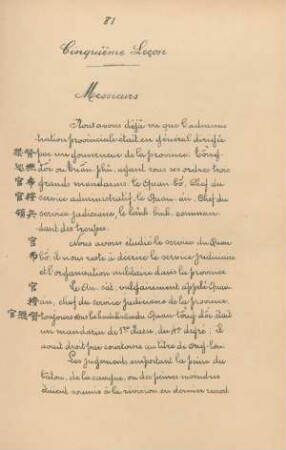 81
Cinquième Leçon
Messieurs
Nous avons déjà vu que l'adminis
tration provinciale était en général dirigée
par un gouverneur de la province. Tông
đôc ou tuân phủ, ayant sous ses ordres trois
grands mandarins, le Quan bô, Chef du
service administratif, le Quan-án, Chef du
service judiciaire, le Lanh binh, comman
dant des troupes.
Nous avons étudié le service du Quan
bô, il nous reste à décrire le service judiciaire
et l'organisation militaire dans la province
Le An-sát, vulgairement appelé Quan
an, chef du service judiciaire de la province
toujours sous la du Quan Tông đôc était
un mandarin de 1ère classe, du 4e degré. Il
avait droit par courtoisie au titre de Ong-lon.
Les jugements emportant la peine du
bâton, de la cangue, ou des peines moindres
étaient soumis à la révision en dernier ressort
官
布
官
按